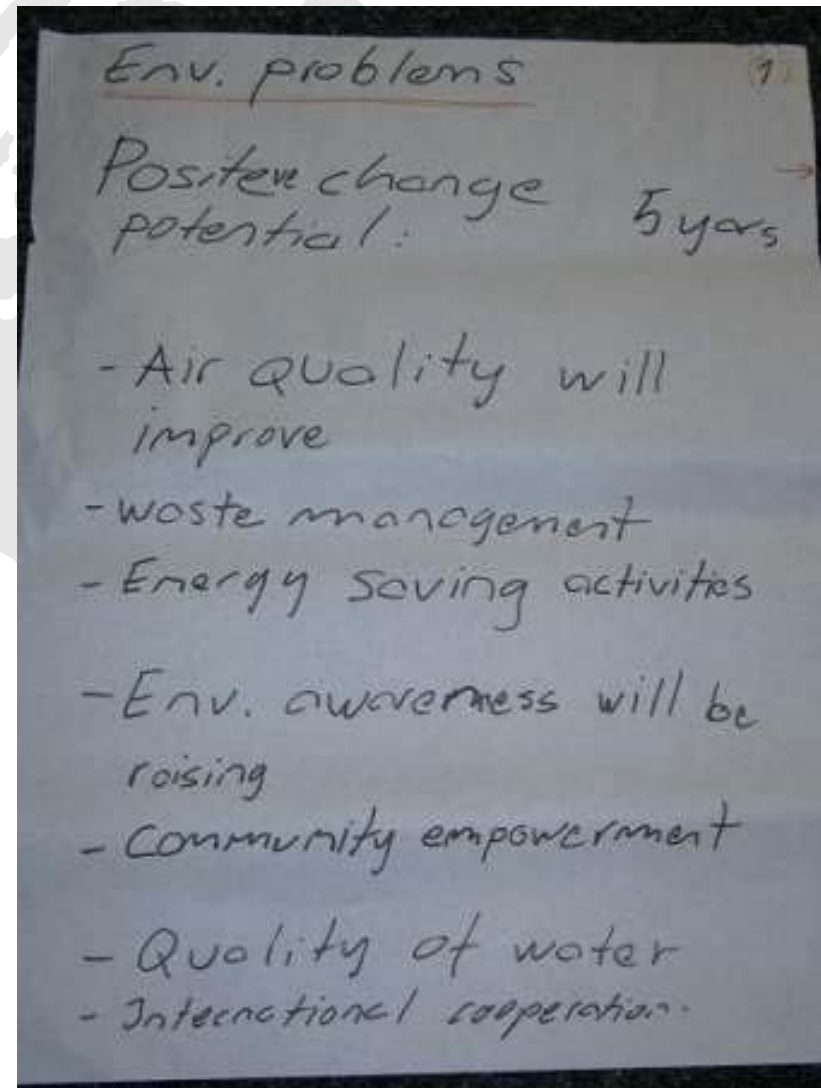 Env. problems (1)
Positeve change
potential: 5 yars
- Air Quality will
improve
- waste management
- Energy saving activities
- Env. awareness will be
raising
- Community empowerment
- Quality of water
- International cooperation.